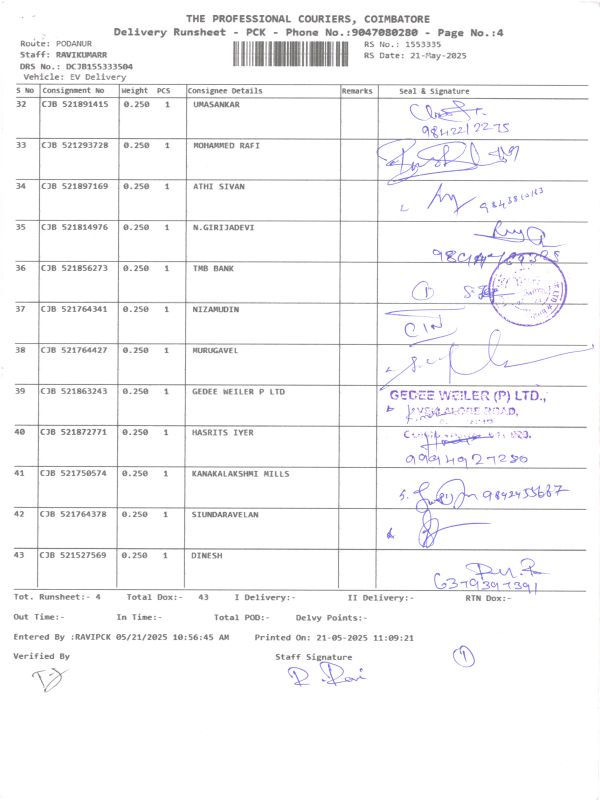 THE PROFESSIONAL COURIERS, COIMBATORE
Delivery Runsheet - PCK - Phone No.:9047080280 - Page No.:4
Route: PODANUR RS No.: 1553335
Staff: RAVIKUMARR RS Date: 21-May-2025
DRS No.: DCJB155333504
Vehicle: EV Delivery
S No Consignment No Weight PCS Consignee Details Remarks Seal & Signature
32 CJB 521891415 0.250 1 UMASANKAR
9842212275
33 CJB 521293728 0.250 1 MOHAMMED RAFI
34 CJB 521897169 0.250 1 ATHI SIVAN
35 CJB 521814976 0.250 1 N.GIRIJADEVI
36 CJB 521856273 0.250 1 TMB BANK
1
37 CJB 521764341 0.250 1 NIZAMUDIN
38 CJB 521764427 0.250 1 MURUGAVEL
39 CJB 521863243 0.250 1 GEDEE WEILER P LTD GEDEE WEILER (P) LTD.,
ROAD,
40 CJB 521872771 0.250 1 HASRITS IYER
9994927280
41 CJB 521750574 0.250 1 KANAKALAKSHMI MILLS
42 CJB 521764378 0.250 1 SIUNDARAVELAN
43 CJB 521527569 0.250 1 DINESH
6379397391
Tot. Runsheet:- 4 Total Dox:- 43 I Delivery:- II Delivery:- RTN Dox:-
Out Time:- In Time:- Total POD:- Delvy Points:-
Entered By :RAVIPCK 05/21/2025 10:56:45 AM Printed On: 21-05-2025 11:09:21
Verified By Staff Signature
R. Ravi